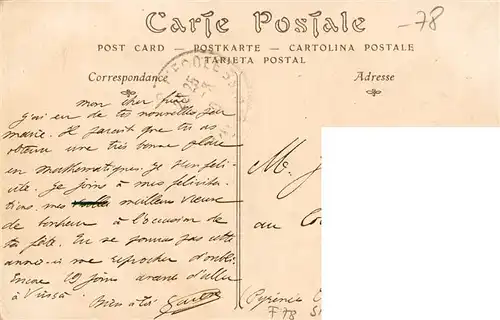 Carte Postale
-78
POST CARD — POSTKARTE — CARTOLINA POSTALE
TARJETA POSTAL
Correspondance
Adresse
ECOLE
25
mon cher frère
j'ai eu de tes nouvelles par
marie. Il paraît que tu as
obtenu une très bonne place
en mathématiques. Je t'en féli-
cite. Je joins à mes félicita-
tions mes meilleurs vœux
de bonheur à l'occasion de
ta fête. Tu ne pourras pas cette
année-ci me reprocher d'oubli.
Encore 19 jours avant d'aller
à
bien à toi
M. J
au
(Pyrénées
F78